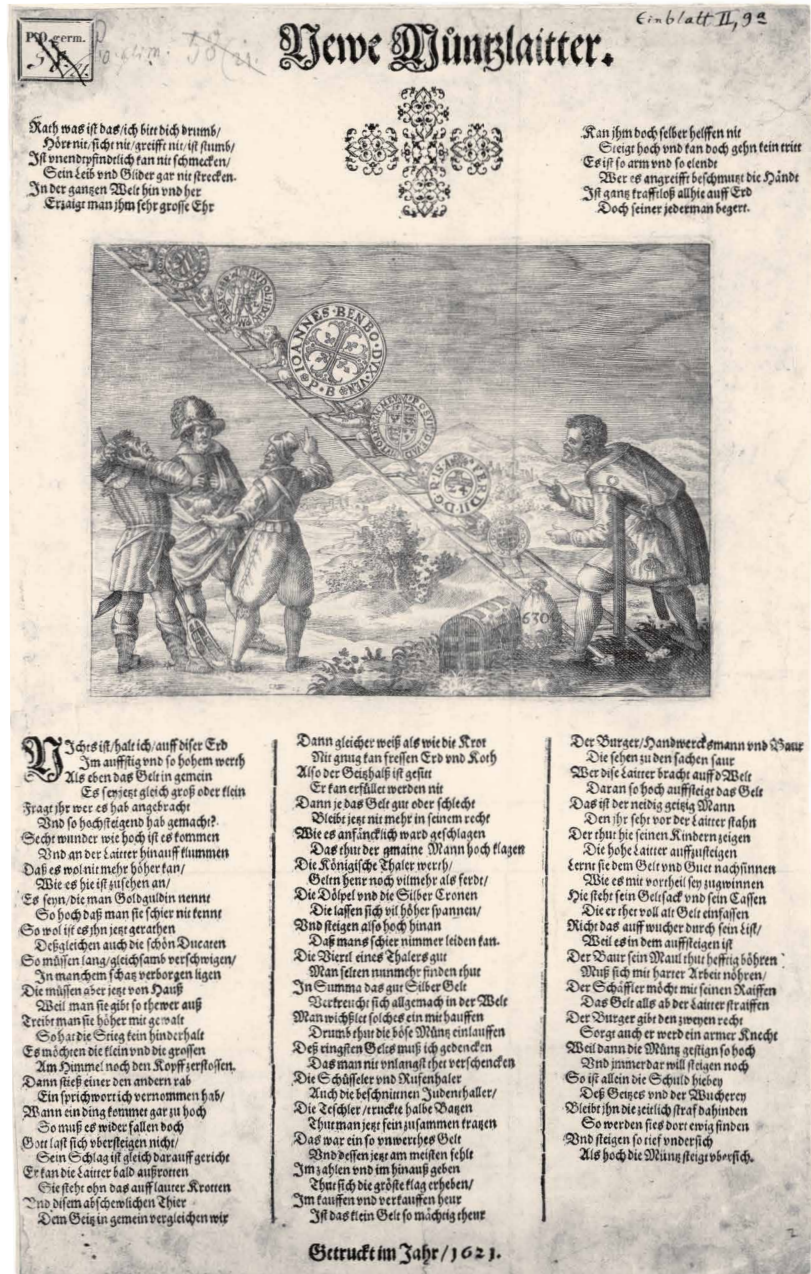 Einblatt II, 9a
PSO germ.
Newe Müntzlaitter.
Rath was ist das/ich bitt dich drumb/
Hört nit/sicht nit/greifft nit/ist stumb/
Ist vnendpfindtlich kan nit schmecken/
Sein Leib vnd Glider gar nit strecken.
In der gantzen Welt hin vnd her
Erzaigt man jhm sehr grosse Ehr
Kan jhm doch selber helffen nit
Steigt hoch vnd kan doch gehn kein tritt
Es ist so arm vnd so elendt
Wer es angreifft beschmutzt die Händt
Ist gantz krafftloß allhie auff Erd
Doch seiner jederman begert.
IOANNES·BENBO·DVX·VEN
P·B
FERD II·D·G·R·I·S·A
630
NIchts ist/halt ich/auff diser Erd
Im auffstig vnd so hohem werth
Als eben das Gelt in gemein
Es sey jetzt gleich groß oder klein
Fragt jhr wer es hab angebracht
Vnd so hochsteigend hab gemacht?
Secht wunder wie hoch ist es kommen
Vnd an der Laitter hinauff klummen
Daß es wol nit mehr höher kan/
Wie es hie ist zusehen an/
Es seyn/die man Goldguldin nennt
So hoch daß man sie schier nit kennt
So wol ist es jhn jetzt gerathen
Deßgleichen auch die schön Ducaten
So müssen lang/gleichsamb verschwigen/
In manchem schatz verborgen ligen
Die müssen aber jetzt von Hauß
Weil man sie gibt so thewer auß
Treibt man sie höher mit gewalt
So hat die Stieg kein hinderhalt
Es möchten die klein vnd die grossen
Am Himmel noch den Kopff zerstossen.
Dann stieß einer den andern rab
Ein sprichwort ich vernommen hab/
Wann ein ding kommet gar zu hoch
So muß es wider fallen doch
Gott last sich vbersteigen nicht/
Sein Schlag ist gleich darauff gericht
Er kan die Laitter bald außrotten
Sie steht ohn das auff lauter Krotten
Vnd disem abschewlichen Thier
Dem Geitz in gemein vergleichen wir
Dann gleicher weiß als wie die Krot
Nit gnug kan fressen Erd vnd Koth
Also der Geitzhalß ist gesitt
Er kan erfüllet werden nit
Dann je das Gelt gut oder schlecht
Bleibt jetzt nit mehr in seinem recht
Wie es anfäncklich ward geschlagen
Das thut der gmaine Mann hoch klagen
Die Königische Thaler werth/
Gelten heur noch vil mehr als ferdt/
Die Dölpel vnd die Silber Cronen
Die lassen sich vil höher spannen/
Vnd steigen also hoch hinan
Daß mans schier nimmer leiden kan.
Die Viertl eines Thalers gut
Man selten nunmehr finden thut
In Summa das gut Silber Gelt
Verkreucht sich allgemach in der Welt
Man wichßlet solches ein mit hauffen
Drumb thut die böse Müntz einlauffen
Deß ringsten Geltes muß ich gedencken
Das man nit vnlangst thet verschencken
Die Schüsseler vnd Rusenhaler
Auch die beschnitnen Judenthaller/
Die Teschler/truckte halbe Batzen
Thut man jetzt fein zusammen kratzen
Das war ein so vnwerthes Gelt
Vnd dessen jetzt am meisten fehlt
Im zahlen vnd im hinauß geben
Thut sich die gröste klag erheben/
Im kauffen vnd verkauffen heur
Ist das klein Gelt so mächtig theur
Der Burger/Handwercksmann vnd Baur
Die sehen zu den sachen saur
Wer dise Laitter bracht auff d Welt
Daran so hoch auffsteigt das Gelt
Das ist der neidig geitzig Mann
Den jhr seht vor der Laitter stahn
Der thut hie seinen Kindern zeigen
Die hohe Laitter auffzusteigen
Lernt sie dem Gelt vnd Guet nachsinnen
Wie es mit vortheil sey zugwinnen
Hie steht sein Geltsack vnd sein Cassen
Die er thet voll alt Gelt einfassen
Richt das auff wucher durch sein List/
Weil es in dem auffsteigen ist
Der Baur sein Maul thut hefftig böhren
Muß sich mit harter Arbeit nöhren/
Der Schäffler möcht mit seinen Raiffen
Das Gelt alls ab der Laitter straiffen
Der Burger gibt den zweyen recht
Sorgt auch er werd ein armer Knecht
Weil dann die Müntz gestign so hoch
Vnd jmmerdar will steigen noch
So ist allein die Schuld hiebey
Deß Geitzes vnd der Wucherey
Bleibt jhn die zeitlich straf dahinden
So werden sies dort ewig finden
Vnd steigen so tief vndersich
Als hoch die Müntz steigt vbersich.
Getruckt im Jahr/1621.